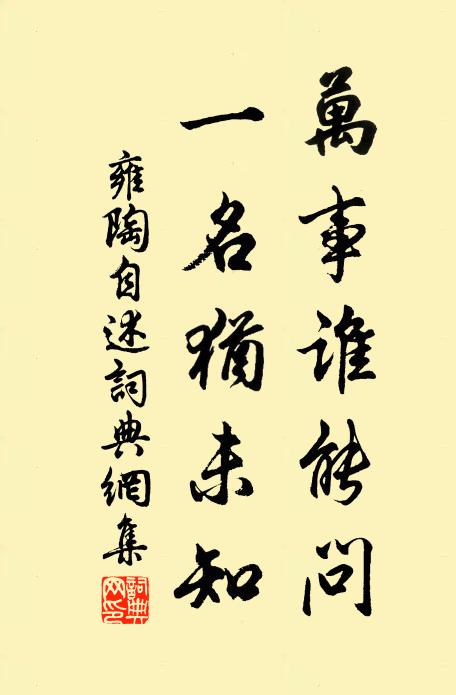 萬事誰能問
一名猶未知
雍陶自述詞典網集
詞典網印